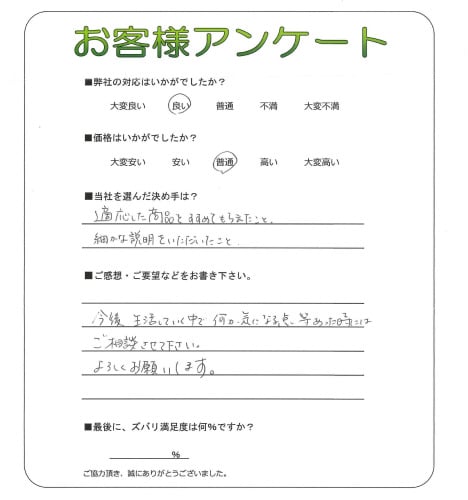 お客様アンケート
■弊社の対応はいかがでしたか？
大変良い 良い 普通 不満 大変不満
■価格はいかがでしたか？
大変安い 安い 普通 高い 大変高い
■当社を選んだ決め手は？
適応した商品をすすめてもらえたこと、
細かな説明をいただいたこと
■ご感想・ご要望などをお書き下さい。
今後 生活していく中で 何か気になる点、等あった時には
ご相談させて下さい。
よろしくお願いします。
■最後に、ズバリ満足度は何%ですか？
%
ご協力頂き、誠にありがとうございました。